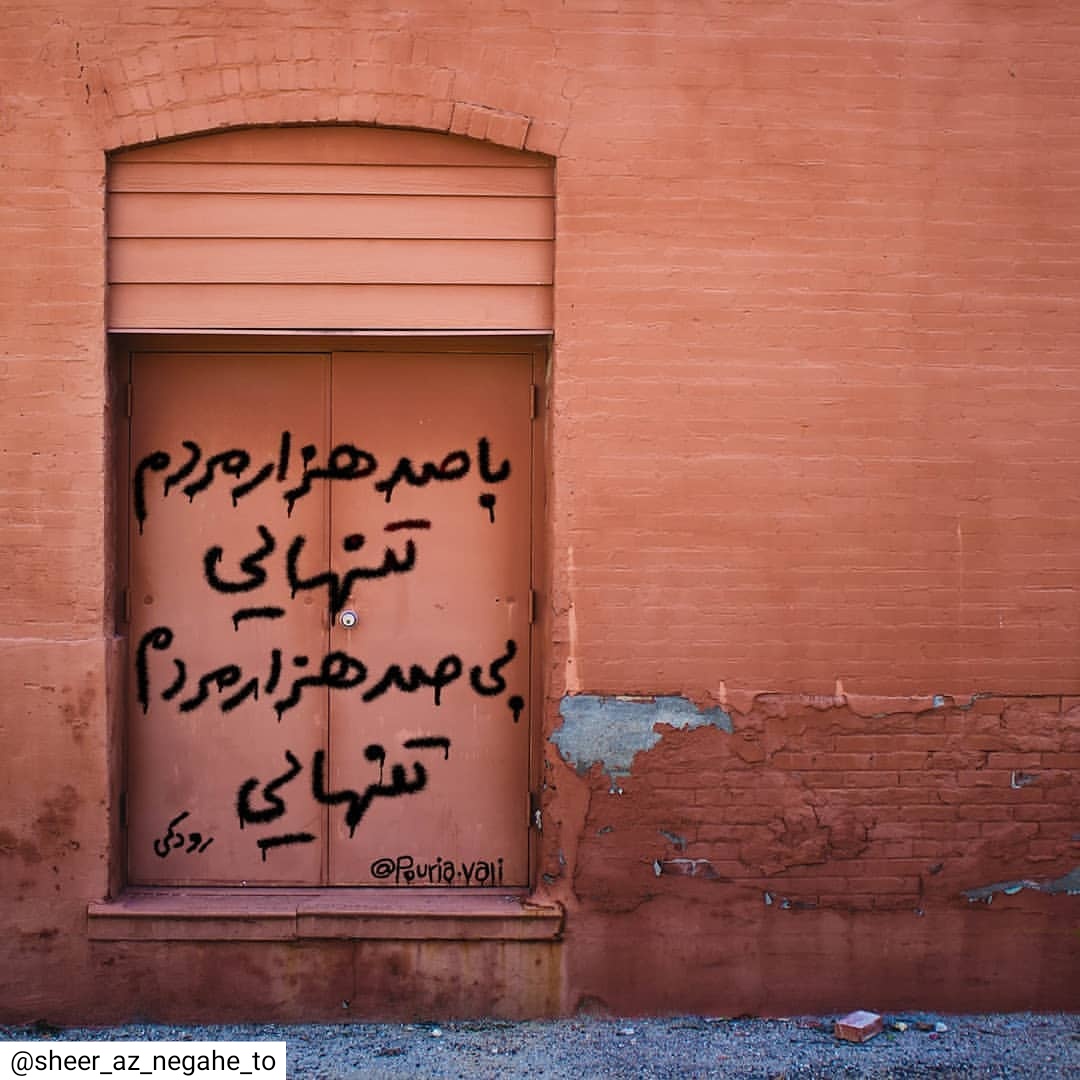 با صد هزار مردم
تنهایی
بی صد هزار مردم
تنهایی
رودکی
@Pouria.vali
@sheer_az_negahe_to